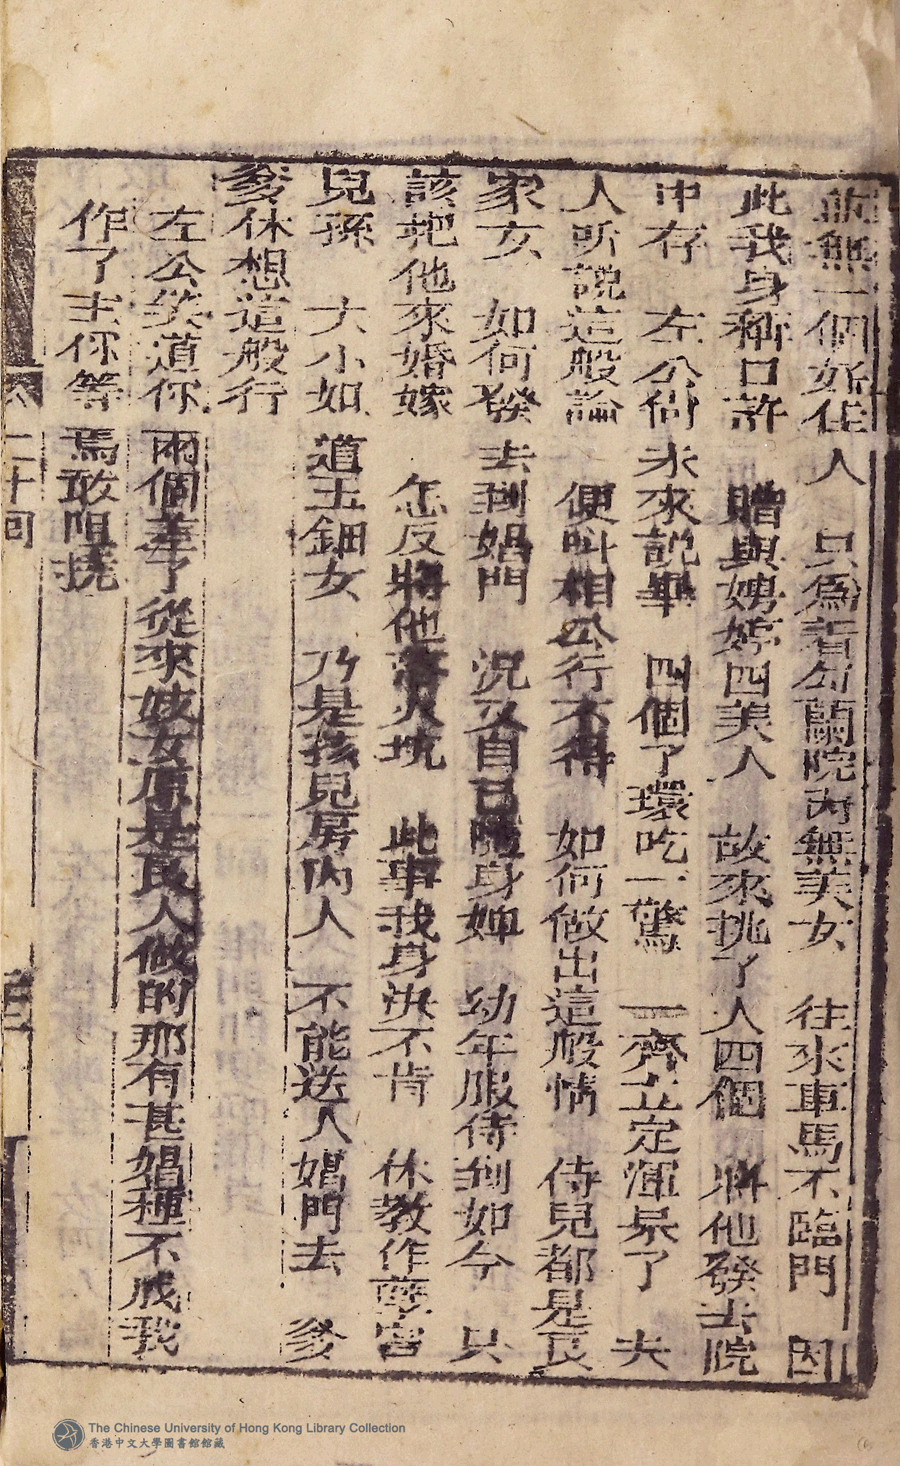 並無一個好佳人　只為著勾蘭院內無美女　往來車馬不臨門　因
此我身稱口許　贈與娉婷四美人　故來挑了人四個　將他發去院
中存　左公尚未來説畢　四個了環吃一驚　一齊立定渾呆了　夫
人所説這般論　便叫相公行不得　如何做出這般情　侍兒都是良
家女　如何發去到娼門　況又自己隨身婢　幼年服侍到如今　只
該把他來婚嫁　怎反將他落火坑　此事我身决不肯　休教作孽害
兒孫　大小如　道玉鈿女　乃是孩兒房內人　不能送人娼門去　爹
爹休想這般行
左公笑道你　兩個差了從來妓女原是良人做的那有甚娼種不成我
作了主你等　焉敢阻撓
二十回
The Chinese University of Hong Kong Library Collection
香港中文大學圖書館館藏